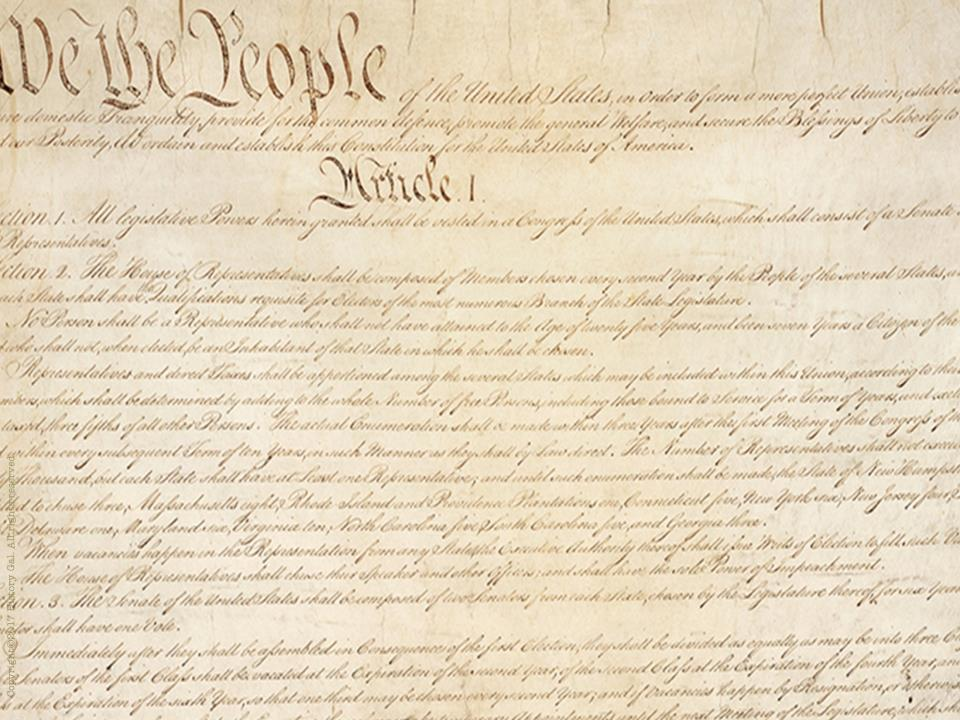 We the People of the United States, in Order to form a more perfect Union, establis
ure domestic Tranquility, provide for the common defence, promote the general Welfare, and secure the Blessings of Liberty to
our Posterity, do ordain and establish this Constitution for the United States of America.
Article. I.
ection. 1. All legislative Powers herein granted shall be vested in a Congress of the United States, which shall consist of a Senate
Representatives.
ection. 2. The House of Representatives shall be composed of Members chosen every second Year by the People of the several States, a
ach State shall have Qualifications requisite for Electors of the most numerous Branch of the State Legislature.
No Person shall be a Representative who shall not have attained to the Age of twenty five Years, and been seven Years a Citizen of the
who shall not, when elected, be an Inhabitant of that State in which he shall be chosen.
Representatives and direct Taxes shall be apportioned among the several States which may be included within this Union, according to thei
mbers, which shall be determined by adding to the whole Number of free Persons, including those bound to Service for a Term of Years, and
taxed, three fifths of all other Persons. The actual Enumeration shall be made within three Years after the first Meeting of the Congress of
thin every subsequent Term of ten Years, in such Manner as they shall by Law direct. The Number of Representatives shall not exceed
Thousand, but each State shall have at Least one Representative; and until such enumeration shall be made, the State of New Hampsh
d to chuse three, Massachusetts eight, Rhode Island and Providence Plantations one, Connecticut five, New York six, New Jersey four,
Delaware one, Maryland six, Virginia ten, North Carolina five, South Carolina five, and Georgia three.
When vacancies happen in the Representation from any State, the Executive Authority thereof shall issue Writs of Election to fill such Va
The House of Representatives shall chuse their Speaker and other Officers; and shall have the sole Power of Impeachment.
ion. 3. The Senate of the United States shall be composed of two Senators from each State, chosen by the Legislature thereof, for six Years
ator shall have one Vote.
Immediately after they shall be assembled in Consequence of the first Election, they shall be divided as equally as may be into three Cl
Senators of the first Class shall be vacated at the Expiration of the second Year, of the second Class at the Expiration of the fourth Year, and
at the Expiration of the sixth Year, so that one third may be chosen every second Year; and if Vacancies happen by Resignation, or otherwise
Appointments until the next Meeting of the Legislature, which sh
Copyright © 2017 History Gal. All rights reserved.